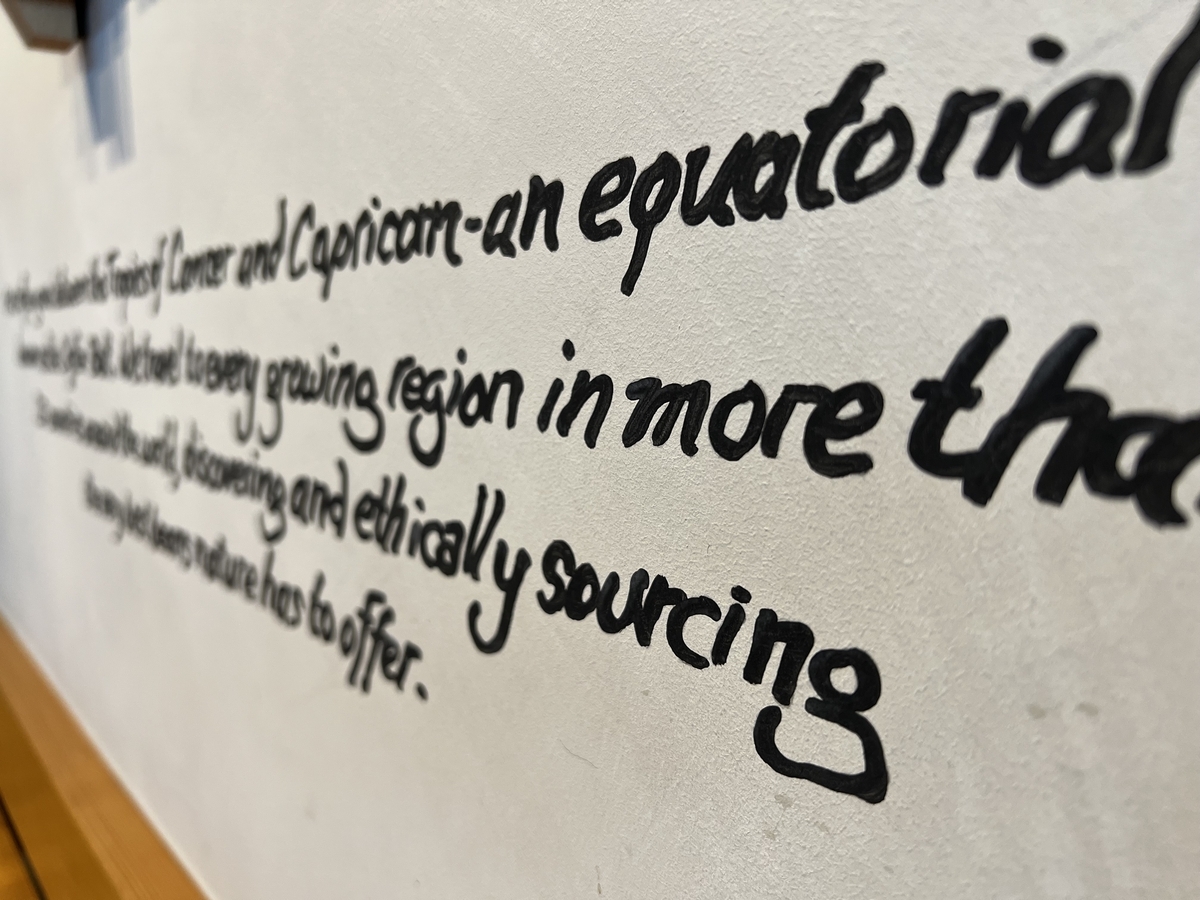 between the Tropics of Cancer and Capricorn-an equatorial
Belt. We travel to every growing region in more tha
the world, discovering and ethically sourcing
the very best beans nature has to offer.